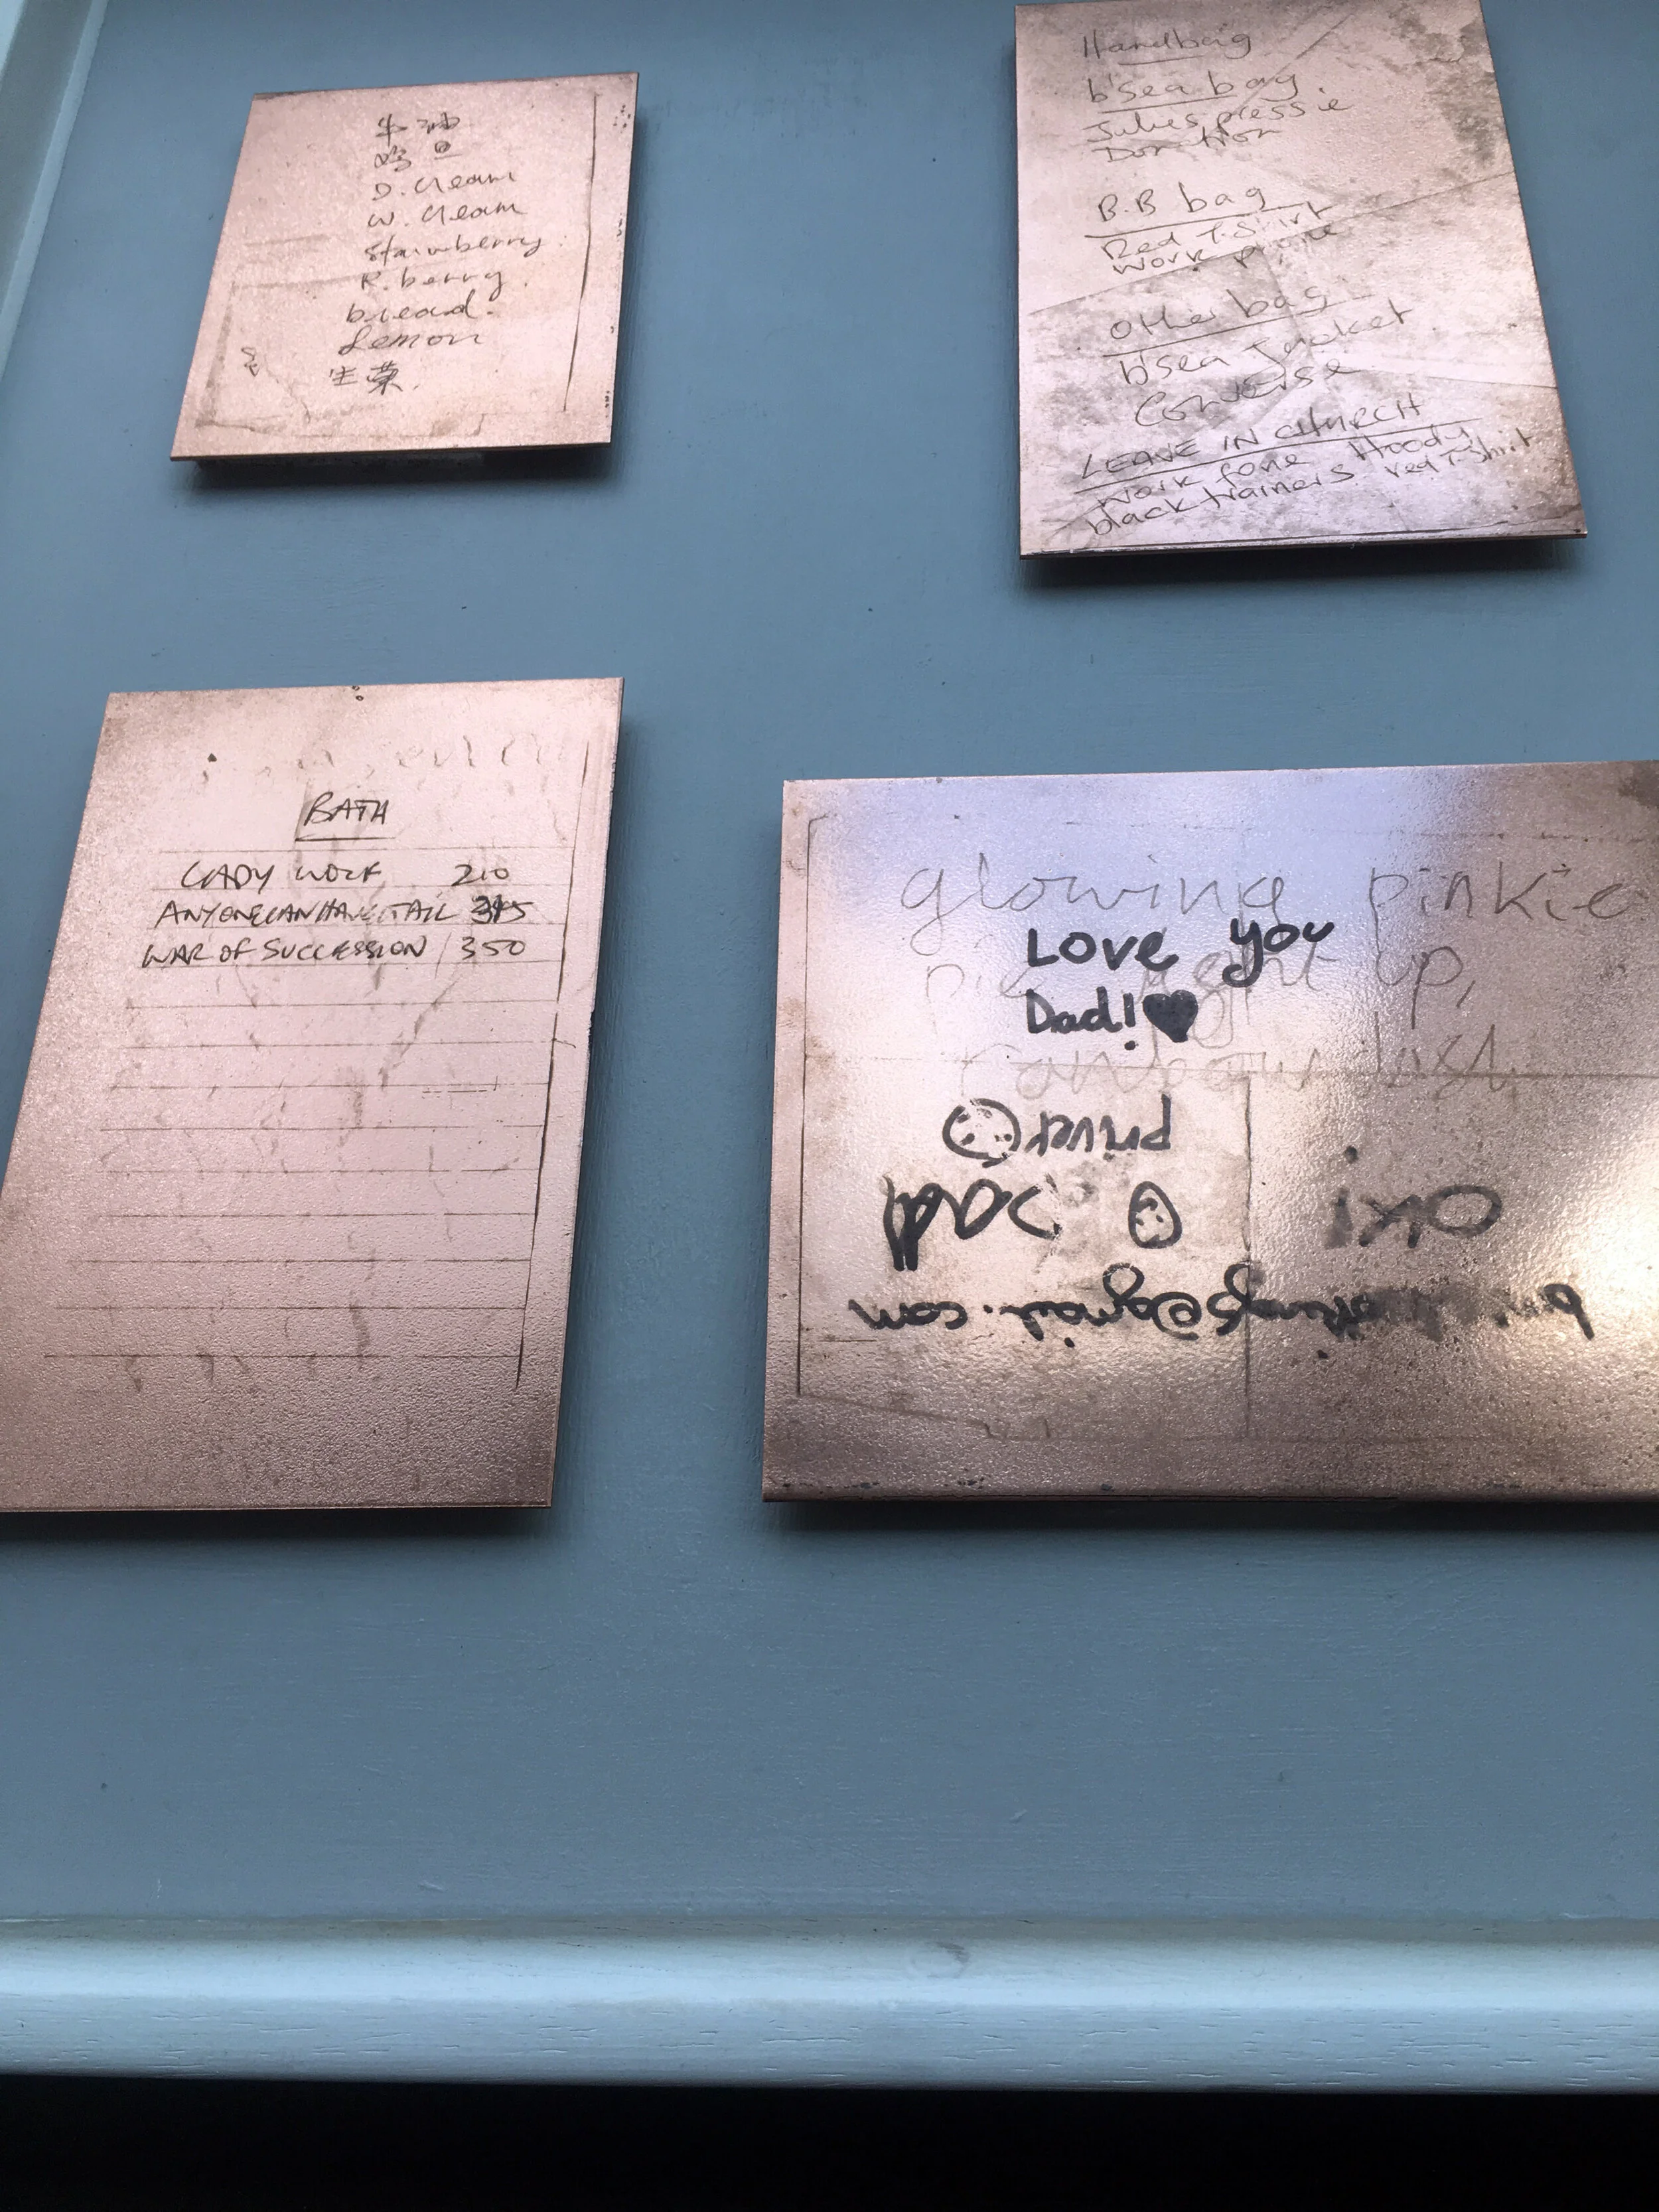 牛油
鸡旦
D. Cream
W. Cream
Strawberry
R. berry
bread.
Lemon
生菜
Handbag
b'sea bag
Jules pressie
B.B bag
Red T-Shirt
work phone
Other bag
b'sea Jacket
Converse
LEAVE IN CHURCH
work fone Hoody
black trainers red T-Shirt
BATH
LADY WOLF 210
ANYONE CAN HAVE A TAIL
WAR OF SUCCESSION / 350
glowing pinkie
Love you
up,
Dad! ♥
priver
Dad
oki
@gmail.com